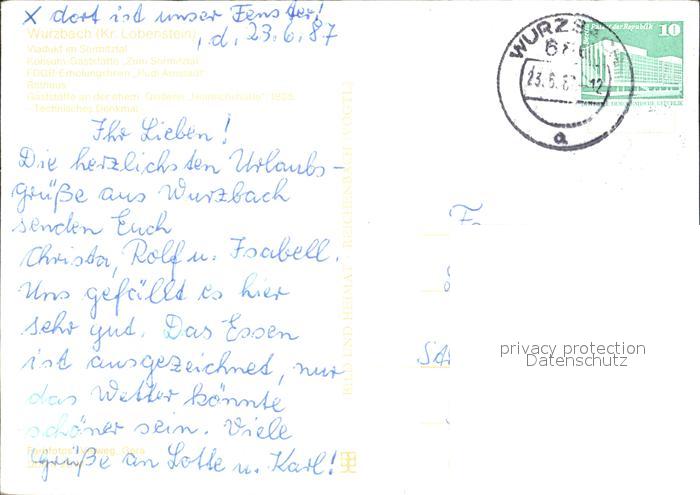 x dort ist unser Fenster!
Wurzbach (Kr. Lobenstein)
, d. 23.6.87
Viadukt im Sormitztal
Konsum-Gaststätte "Zum Sormitztal"
FDGB-Erholungsheim "Rudi Arnstadt"
Rathaus
Gaststätte an der ehem. Gießerei "Heinrichshütte", 1825
- Technisches Denkmal -
Ihr Lieben!
Die herzlichsten Urlaubs-
grüße aus Wurzbach
senden Euch
Christa, Rolf u. Isabell.
Uns gefällt es hier
sehr gut. Das Essen
ist ausgezeichnet, nur
das Wetter könnte
schöner sein. Viele
Grüße an Lotte u. Karl!
BILD UND HEIMAT REICHENBACH (VOGTL)
WURZBACH
23.6.87-12
a
Palast der Republik 10
DEUTSCHE DEMOKRATISCHE REPUBLIK
Fa
privacy protection
Datenschutz